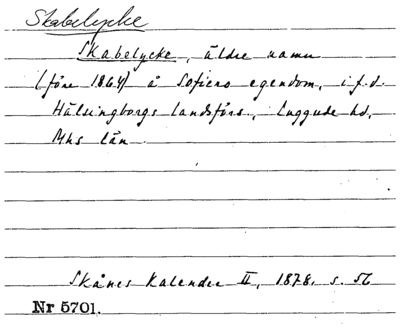 Skabelycke
Skabelycke, äldre namn
(före 1864) å Sofiero egendom, i f.d.
Hälsingborgs landsförs., Luggude hd,
Mhs län.
Skånes Kalender II, 1878, s. 56
Nr 5701.